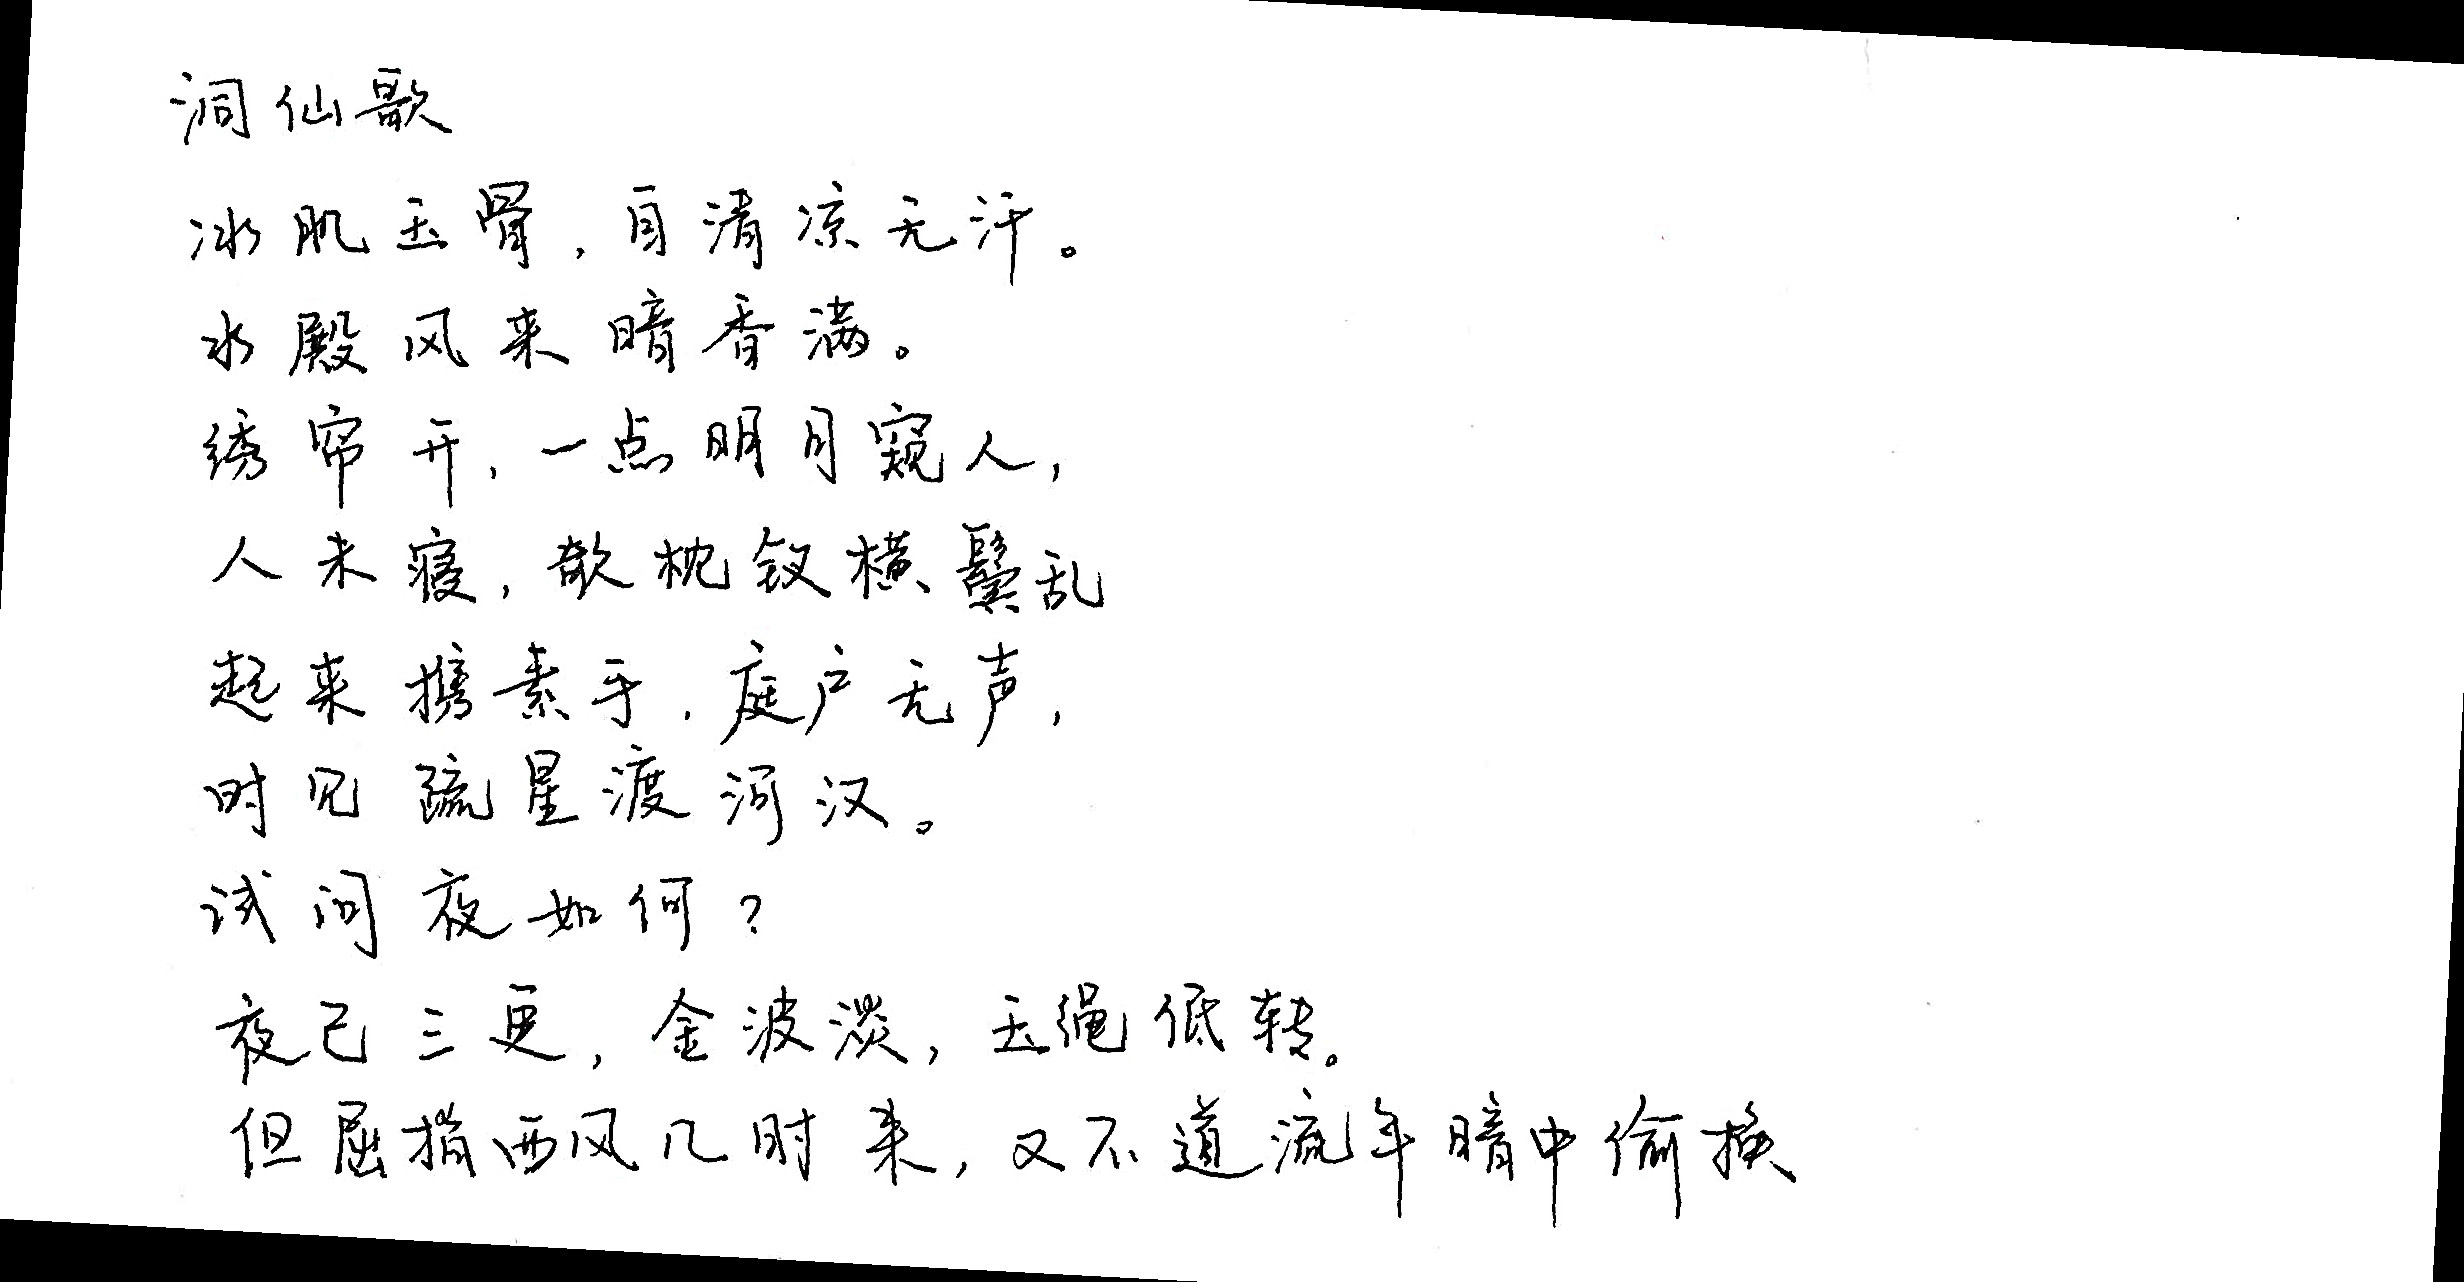 洞仙歌
冰肌玉骨,自清凉无汗。
水殿风来暗香满。
绣帘开,一点明月窥人,
人未寝,欹枕钗横鬓乱
起来携素手,庭户无声,
时见疏星渡河汉。
试问夜如何?
夜已三更,金波淡,玉绳低转。
但屈指西风几时来,又不道流年暗中偷换